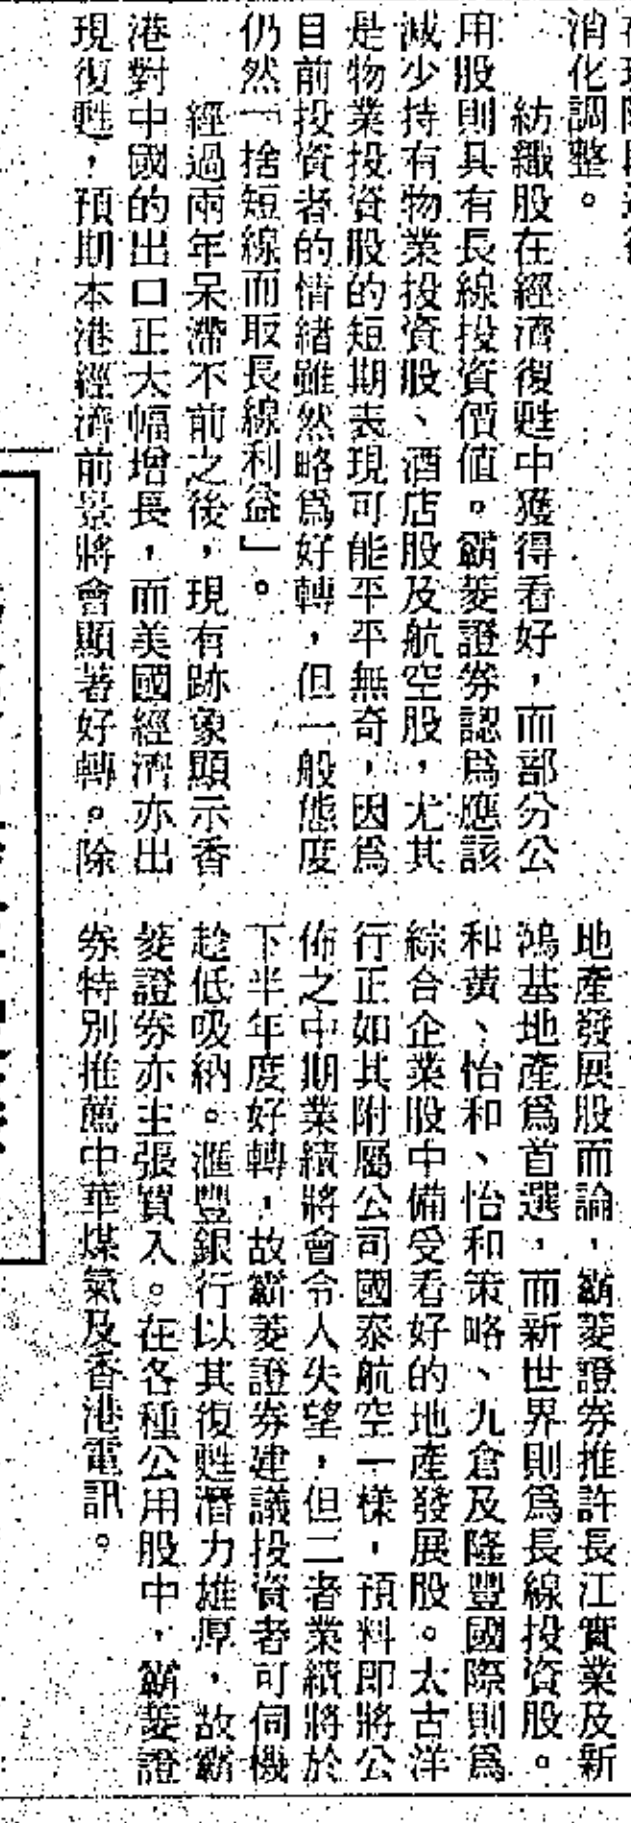 消化調整。
紡織股在經濟復甦中獲得看好，而部分公
用股則具有長線投資價值。霸菱證券認爲應該
減少持有物業投資股、酒店股及航空股，尤其
是物業投資股的短期表現可能平平無奇，因爲
目前投資者的情緒雖然略爲好轉，但一般態度
仍然「捨短線而取長線利益」。
經過兩年呆滯不前之後，現有跡象顯示香
港對中國的出口正大幅增長，而美國經濟亦出
現復甦，預期本港經濟前景將會顯著好轉。除
地產發展股而論，霸菱證券推許長江實業及新
鴻基地產爲首選，而新世界則爲長線投資股。
和黃、怡和、怡和策略、九倉及隆豐國際則爲
綜合企業股中備受看好的地產發展股。太古洋
行正如其附屬公司國泰航空一樣，預料即將公
佈之中期業績將會令人失望，但二者業績將於
下半年度好轉，故霸菱證券建議投資者可伺機
趁低吸納。滙豐銀行以其復甦潛力雄厚，故霸
菱證券亦主張買入。在各種公用股中，霸菱證
券特別推薦中華煤氣及香港電訊。